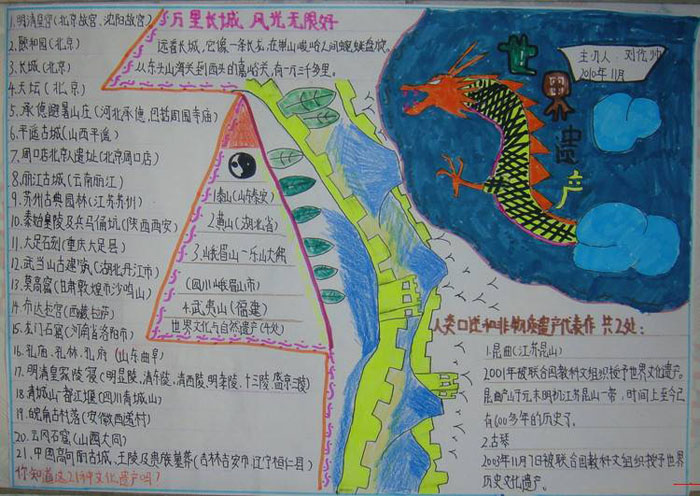 1.明清皇宫(北京故宫、沈阳故宫)
2.颐和园(北京)
3.长城(北京)
4.天坛(北京)
5.承德避暑山庄(河北承德,包括周围寺庙)
6.平遥古城(山西平遥)
7.周口店北京人遗址(北京周口店)
8.丽江古城(云南丽江)
9.苏州古典园林(江苏苏州)
10.秦始皇陵及兵马俑坑(陕西西安)
11.大足石刻(重庆大足县)
12.武当山古建筑(湖北丹江市)
13.莫高窟(甘肃敦煌市沙鸣山)
14.布达拉宫(西藏拉萨)
15.龙门石窟(河南省洛阳市)
16.孔庙、孔林、孔府(山东曲阜)
17.明清皇家陵寝(明显陵、清东陵、清西陵、明孝陵、十三陵、盛京三陵)
18.青城山-都江堰(四川青城山)
19.皖南古村落(安徽西递村)
20.云冈石窟(山西大同)
21.中国高句丽古城、王陵及贵族墓葬(吉林吉安市,辽宁桓仁县)
你知道这21种文化遗产吗?
万里长城,风光无限好
远看长城,它像一条长龙,在崇山峻岭之间蜿蜒盘旋。
从东头山海关到西头的嘉峪关,有一万三千多里。
1.泰山(山东泰安)
2.黄山(湖北省)
3.峨眉山-乐山大佛
(四川峨眉山市)
4.武夷山(福建)
世界文化与自然遗产(4处)
世
界
遗
产
主办人:刘佗帅
2010年11月
人类口述和非物质遗产代表作 共2处:
1.昆曲(江苏昆山)
2001年被联合国教科文组织授予世界文化遗产。
昆曲产于元末明初江苏昆山一带,时间上至今已
有600多年的历史了。
2.古琴
2003年11月7日被联合国教科文组织授予世界
历史文化遗产。